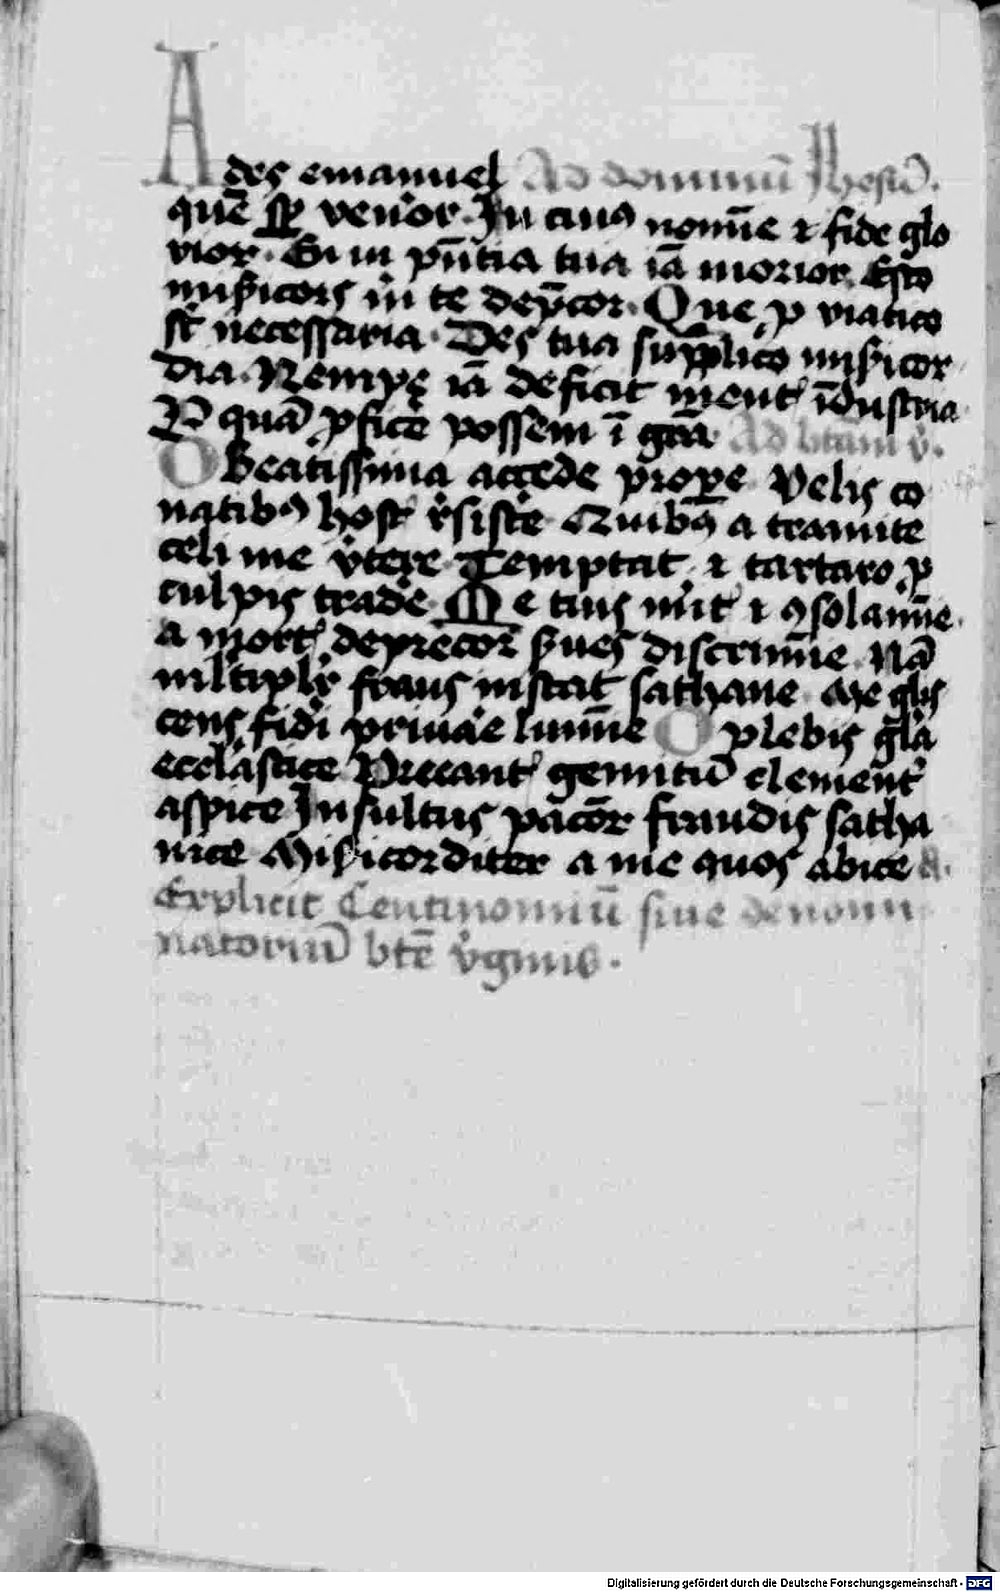 Ades emanuel Ad dominū Jhesū.
quē sp̱ ven̄or. In cuiꝰ nomīe ⁊ fide glo
rior. En in pn̄tia tua iā morior. Esto
mis̄icors in te dep̄cor. Que ꝓ viatico
st̄ necessaria. Des tua supplico mis̄icor
dia. Nempe iā deficit ment᷑ īdustria
P quā ꝑficē possem ī grā Ad btām v̄.
O beatissima accede prope Velis co
natibꝰ host᷑ r̄sist̄e Quibꝰ a tramite
celi me v̄tere Temptat ⁊ tartaro ꝓ
culpis tradē Me tuis mūit᷑ ⁊ ꝯsolamīe
a mort᷑ deprecor s̄ues discrimīe Nā
ml̄tiplr̄ fraus instat sathane Me glis
cens fidi priuāe lumīe O plebis gl̄a
eccl̄astice Precant᷑ gemitū clement᷑
aspice Insultus pācōr fraudis satha
nice Mis̄icorditer a me quos abice A.
Explicit Centinomiū siue denomi
natoriū btē v̄ginis.
Digitalisierung gefördert durch die Deutsche Forschungsgemeinschaft - DFG